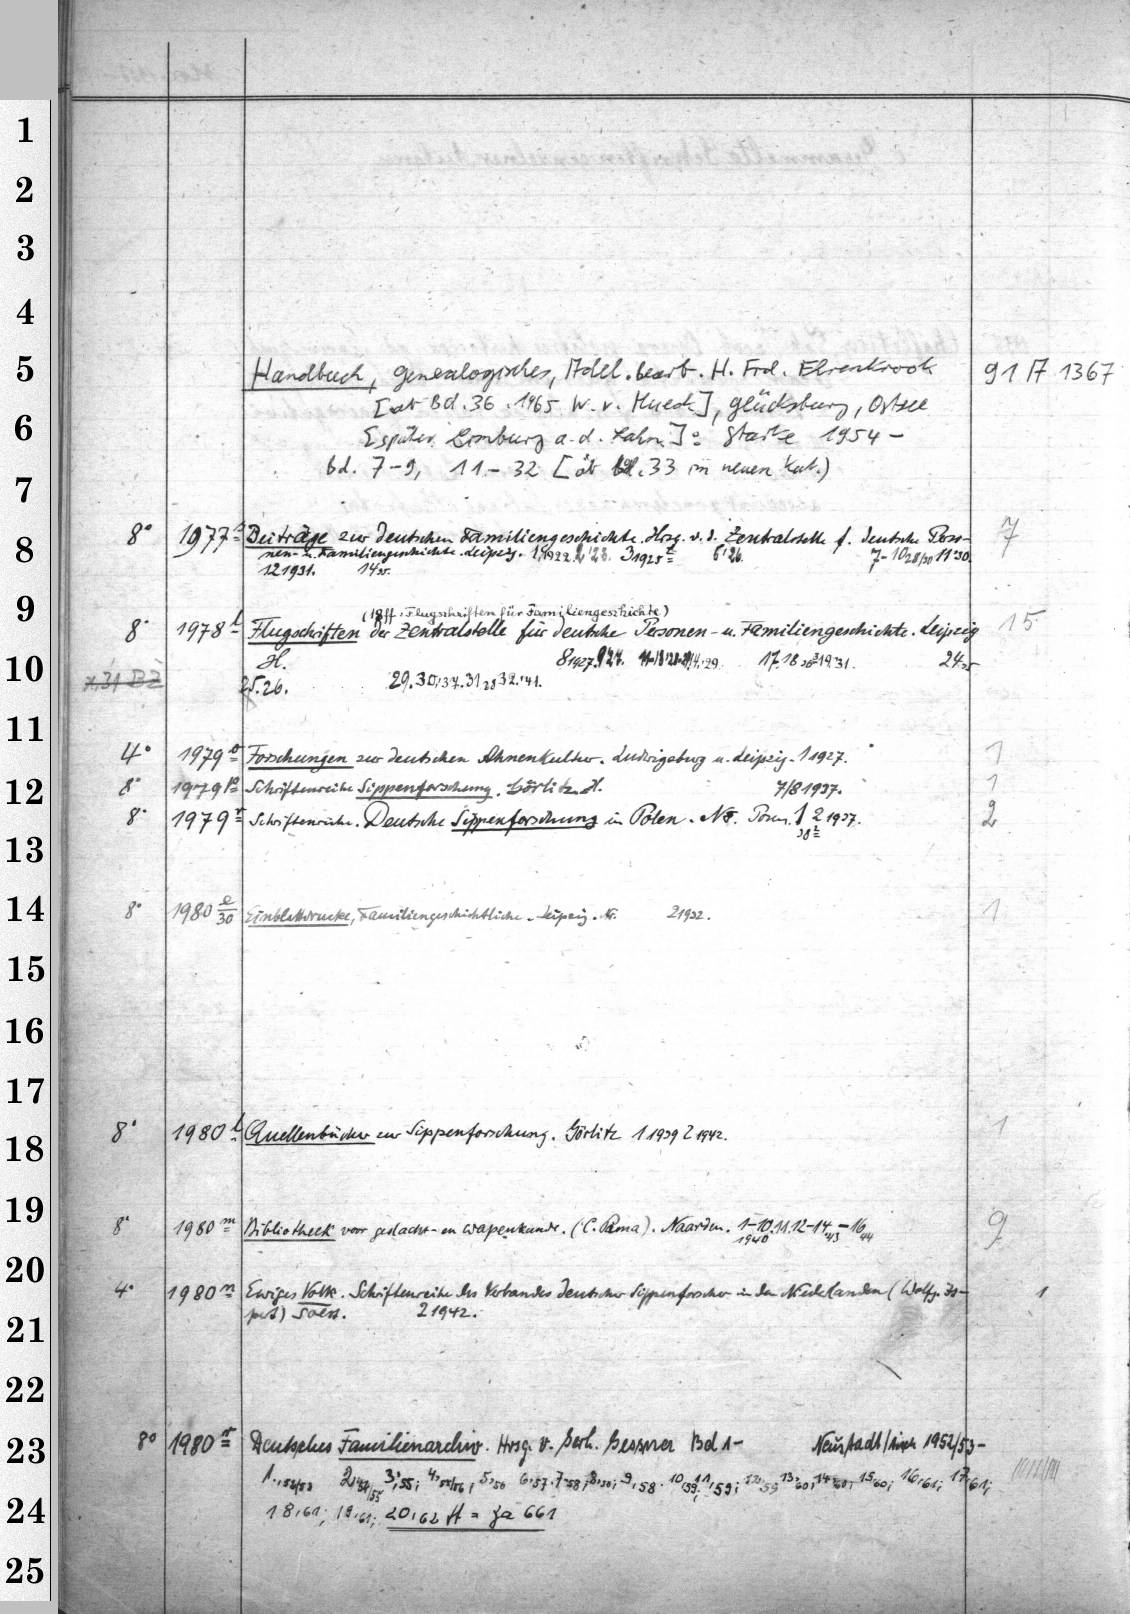 1
2
3
4
5
Handbuch, genealogisches, Adel. bearb. H. Frd. Ehrenkrook 91 A 1367
[ab Bd. 36. 1965 W. v. Hueck], Glücksburg, Ostsee
6
[später Limburg a. d. Lahn]: Starke 1954 –
bd. 7–9, 11–32 [ab bd. 33 im neuen Kat.)
7
8° 1977 Beiträge zur deutschen Familiengeschichte. Hrsg. v. d. Zentralstelle f. deutsche Perso- 7
8
nen- u. Familiengeschichte. Leipzig. 1,1922. 2,'23. 3 1925 6'26. 7-10 28/30 11'30.
12 1931. 14 35.
9
(18ff: Flugschriften für Familiengeschichte)
8° 1978 l Flugschriften der Zentralstelle für deutsche Personen- u. Familiengeschichte. Leipzig 15
10
H. 8 1927. 9'27. 17.18 19'31. 24 35
25.26. 29.30,'37. 31 38 32.'41.
11
4° 1979 o Forschungen zur deutschen Ahnenkultur. Ludwigsburg u. Leipzig. 1 1927. 1
12
8° 1979 p Schriftenreihe Sippenforschung. Görlitz. H. 7/8 1937. 1
8° 1979 r Schriftenreihe. Deutsche Sippenforschung in Polen. Nr. Posen. 1 2 1937. 2
38
13
14
8° 1980 e/30 Einblattdrucke, Familiengeschichtliche. Leipzig. Nr. 2 1932. 1
15
16
17
18
8° 1980 l Quellenbücher zur Sippenforschung. Görlitz 1 1939 2 1942. 1
19
8° 1980 m Bibliotheek voor geslacht- en wapenkunde. (C. Pama). Naarden. 1–10. 11. 12–14 43 –16 44 9
1940
20
4° 1980 n Ewiges Volk. Schriftenreihe des Verbandes deutscher Sippenforscher in den Niederlanden (Wolfg. Is- 1
pert) Soest. 2 1942.
21
22
23
8° 1980 r Deutsches Familienarchiv. Hrsg. v. Gerh. Gessner Bd 1– Neustadt/Aisch 1952/53–
1.,52/53 2,54/55 3,55; 4,55/56; 5,56 6,57. 7,58; 8,58; 9,58. 10,59; 11,59; 12,59 13,60; 14,60; 15,60; 16,61; 17,61;
24
18,61; 19,61; 20,62 ff = Za 661
25